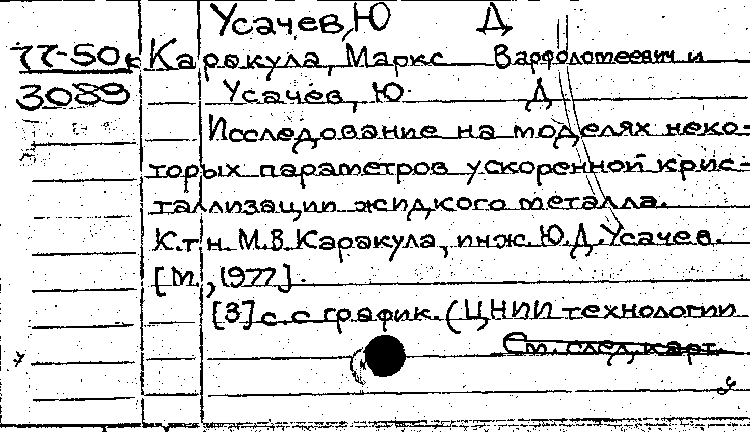 Усачев, Ю Д
77-50к Каракула, Маркс Варфоломеевич и
3089 Усачев, Ю. Д
Исследование на моделях неко-
торых параметров ускоренной крис-
таллизации жидкого металла.
К.т.н. М.В. Каракула, инж. Ю.Д. Усачев.
[М., 1977].
[3] с. с график. (ЦНИИ технологии
См. след. карт.